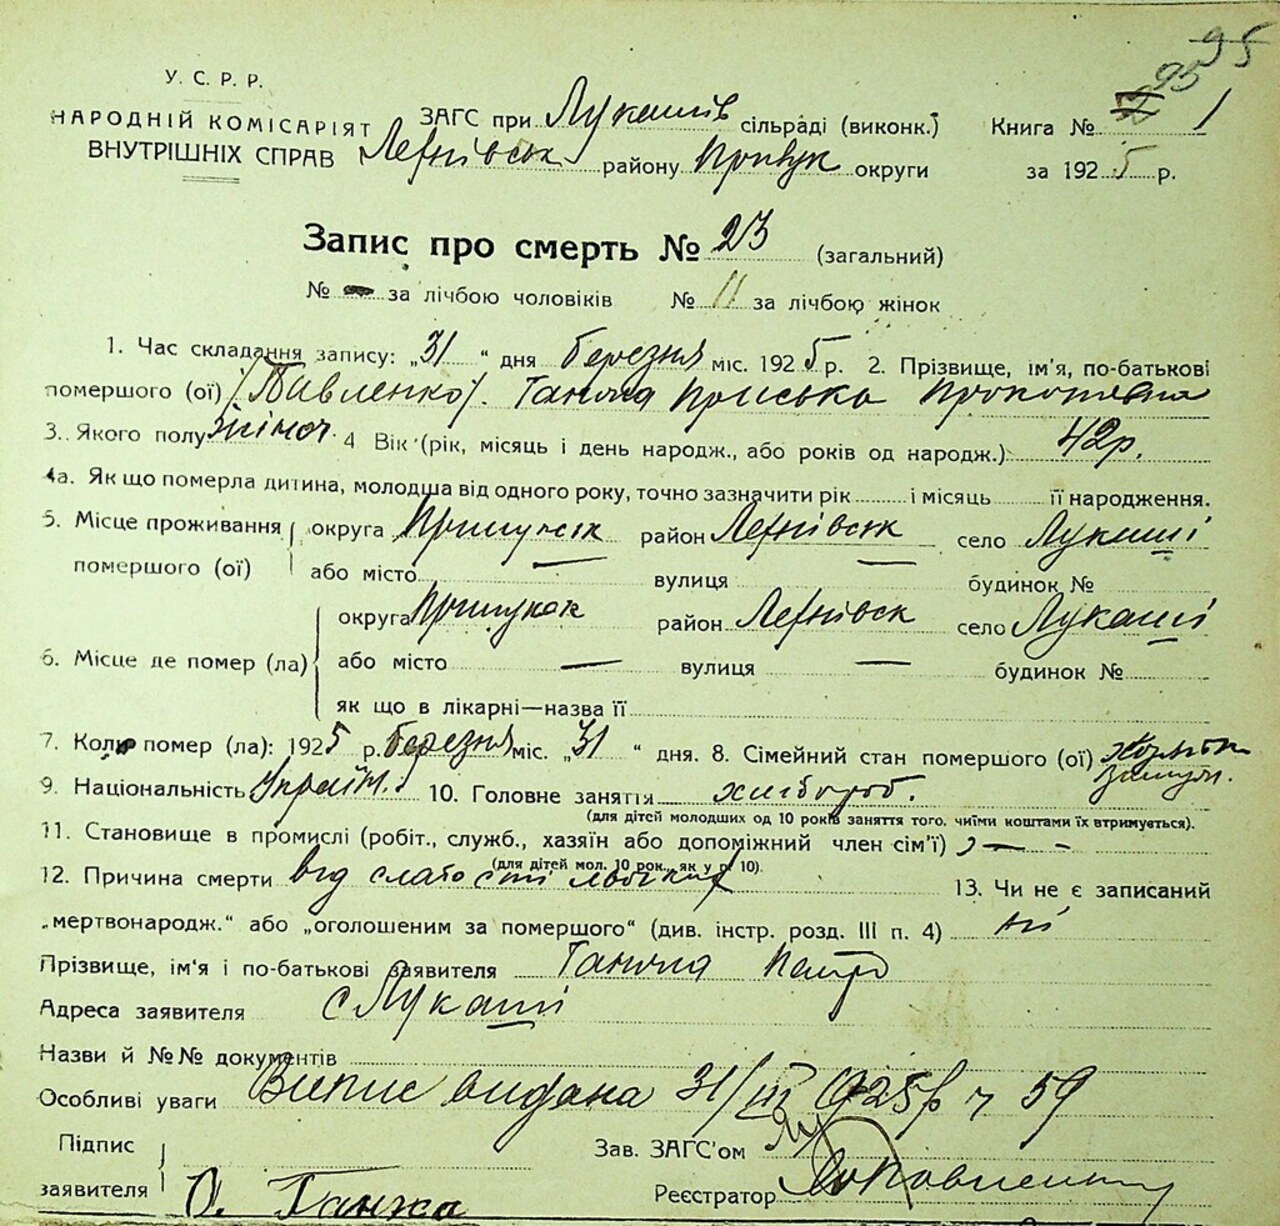 95
95
У. С. Р. Р.
НАРОДНІЙ КОМІСАРІЯТ
ВНУТРІШНІХ СПРАВ
ЗАГС при Лукашів сільраді (виконк.) Книга № 1
району округи за 1925 р.
Запис про смерть № 23 (загальний)
№ — за лічбою чоловіків № 11 за лічбою жінок
1. Час складання запису: „31 “ дня березня міс. 1925 р. 2. Прізвище, ім'я, по-батькові
помершого (ої) /Павленко/. Приська
3. Якого полу жіноч. 4 Вік (рік, місяць і день народж., або років од народж.) 42р.
4а. Як що померла дитина, молодша від одного року, точно зазначити рік і місяць її народження.
5. Місце проживання округа район село Лукаші
помершого (ої) або місто — вулиця — будинок №
округа район село Лукаші
6. Місце де помер (ла) або місто — вулиця — будинок №
як що в лікарні—назва її
7. Коли помер (ла): 1925 р. березня міс. „31 “ дня. 8. Сімейний стан помершого (ої)
9. Національність Україн. 10. Головне заняття хлібороб.
(для дітей молодших од 10 років заняття того, чиїми коштами їх втримується).
11. Становище в промислі (робіт., служб., хазяїн або допоміжний член сім'ї) — -
(для дітей мол. 10 рок., як у р. 10).
12. Причина смерти від 13. Чи не є записаний
„мертвонародж.“ або „оголошеним за помершого“ (див. інстр. розд. III п. 4) ні
Прізвище, ім'я і по-батькові заявителя Петро
Адреса заявителя с Лукаші
Назви й №№ документів
Особливі уваги Випис видана 31/III 925р ч 59
Підпис
заявителя
Зав. ЗАГС'ом
О. Ганжа
Реєстратор